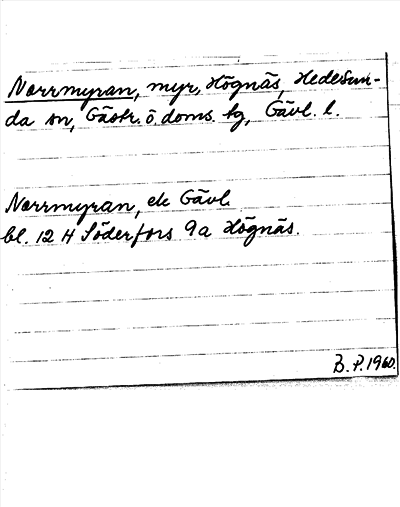 Norrmyran, myr, Högnäs, Hedesun-
da sn, Gästr. ö. doms. tg, Gävl. l.
Norrmyran, ek Gävl.
bl. 12 H Söderfors 9a Högnäs.
B. P. 1960.